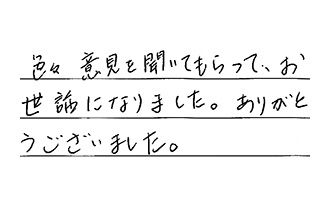 色々意見を聞いてもらって、お
世話になりました。ありがと
うございました。